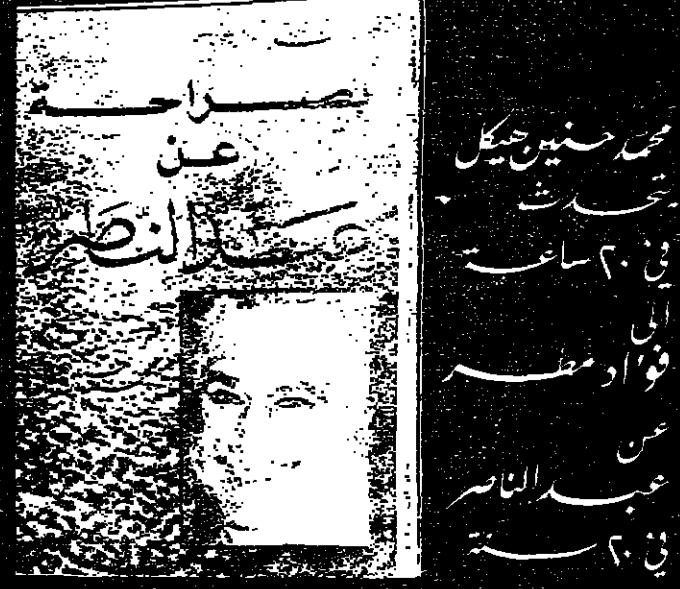 بصراحة
عن
عبد الناصر
محمد حسنين هيكل
يتحدث
في ٢٠ ساعة
الى
فؤاد مطر
عن
عبد الناصر
في ٢٠ سنة